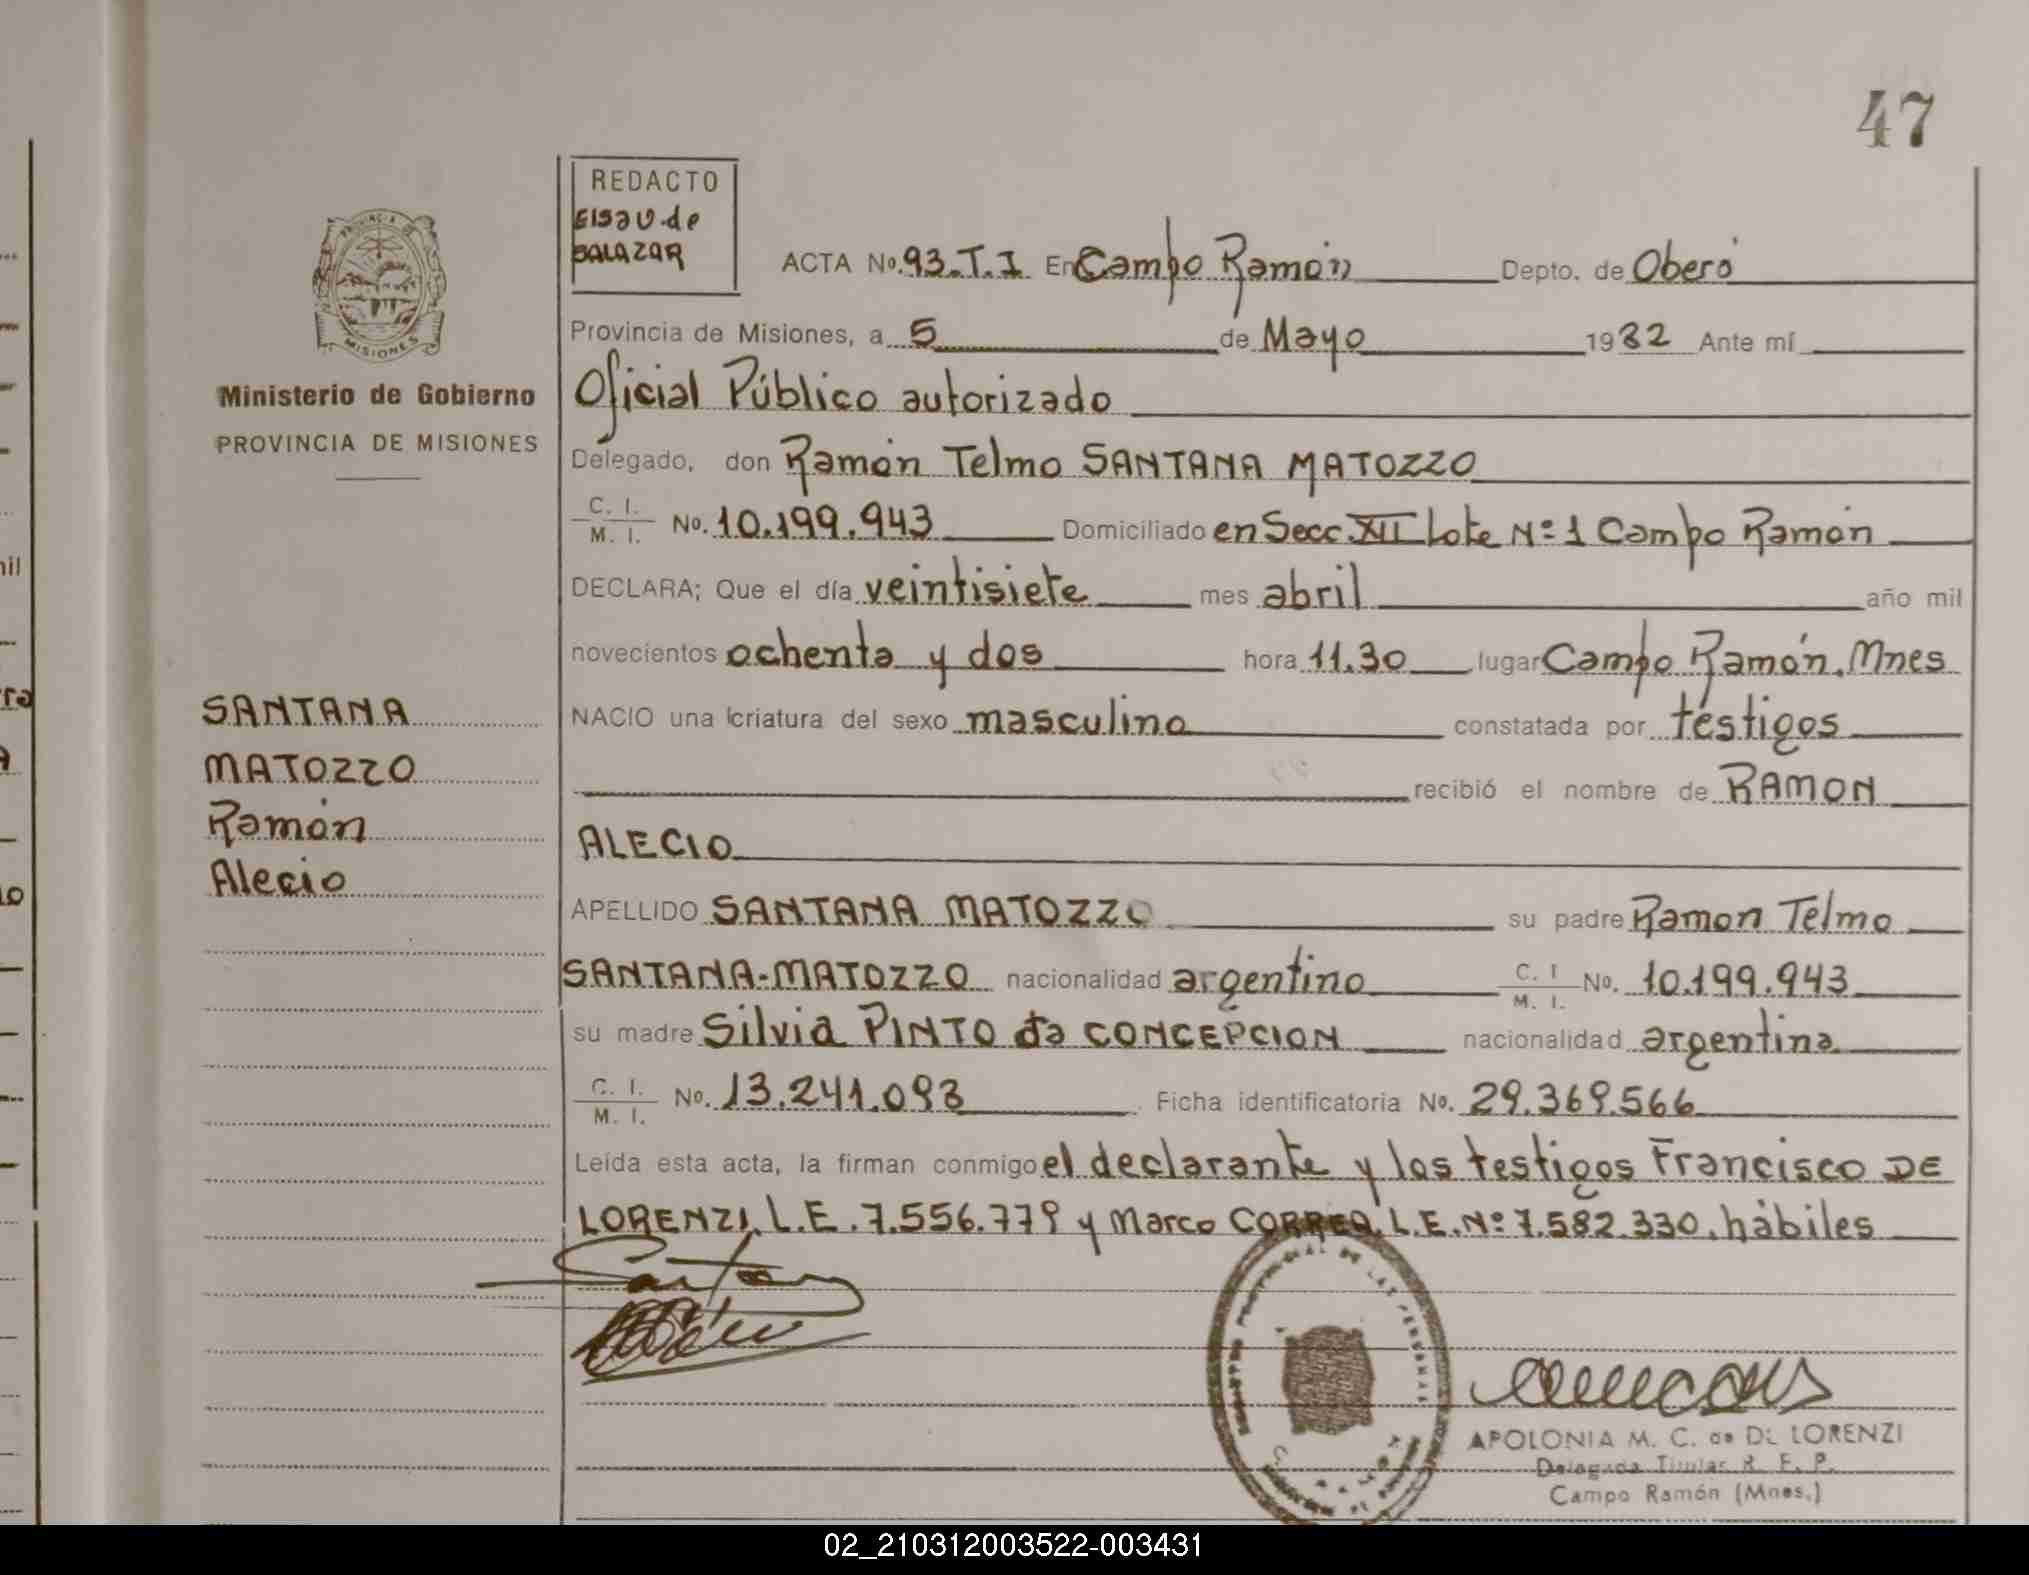 47
REDACTO
Elsa U. de
SALAZAR
ACTA No. 93.T.I En Campo Ramón Depto. de Oberá
Provincia de Misiones, a 5 de Mayo 1982 Ante mí
Oficial Público autorizado
Delegado, don Ramón Telmo SANTANA MATOZZO
C. I. M. I. No. 10.199.943 Domiciliado en Secc. XII Lote Nº 1 Campo Ramón
DECLARA; Que el día veintisiete mes abril año mil
novecientos ochenta y dos hora 11.30 lugar Campo Ramón. Mnes
NACIO una criatura del sexo masculino constatada por testigos
recibió el nombre de RAMON
ALECIO
APELLIDO SANTANA MATOZZO su padre Ramon Telmo
SANTANA-MATOZZO nacionalidad argentino C. I M. I. No. 10.199.943
su madre Silvia PINTO da CONCEPCION nacionalidad argentina
C. I. M. I. No. 13.241.093 Ficha identificatoria No. 29.369.566
Leída esta acta, la firman conmigo el declarante y los testigos Francisco DE
LORENZI. L.E. 7.556.779 y Marco CORREA. L.E. Nº 7.582.330. hábiles
PROVINCIA DE
MISIONES
Ministerio de Gobierno
PROVINCIA DE MISIONES
SANTANA
MATOZZO
Ramón
Alecio
APOLONIA M. C. de DE LORENZI
Delegada Titular R. E. P.
Campo Ramón (Mnes.)
02_210312003522-003431